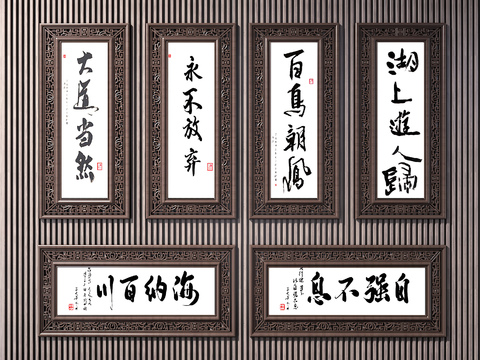 大道当然
永不放弃
百鸟朝凤
湖上进人归
海纳百川
自强不息